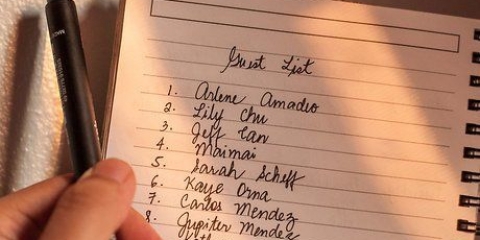 Guest List
1. Arlene Amadio
2. Lily Chu
3. Jeff Tan
4. Maimai
5. Sarah Scheff
6. Kaye Orna
7. Carlos Mendez
8. Jupiter Mendez